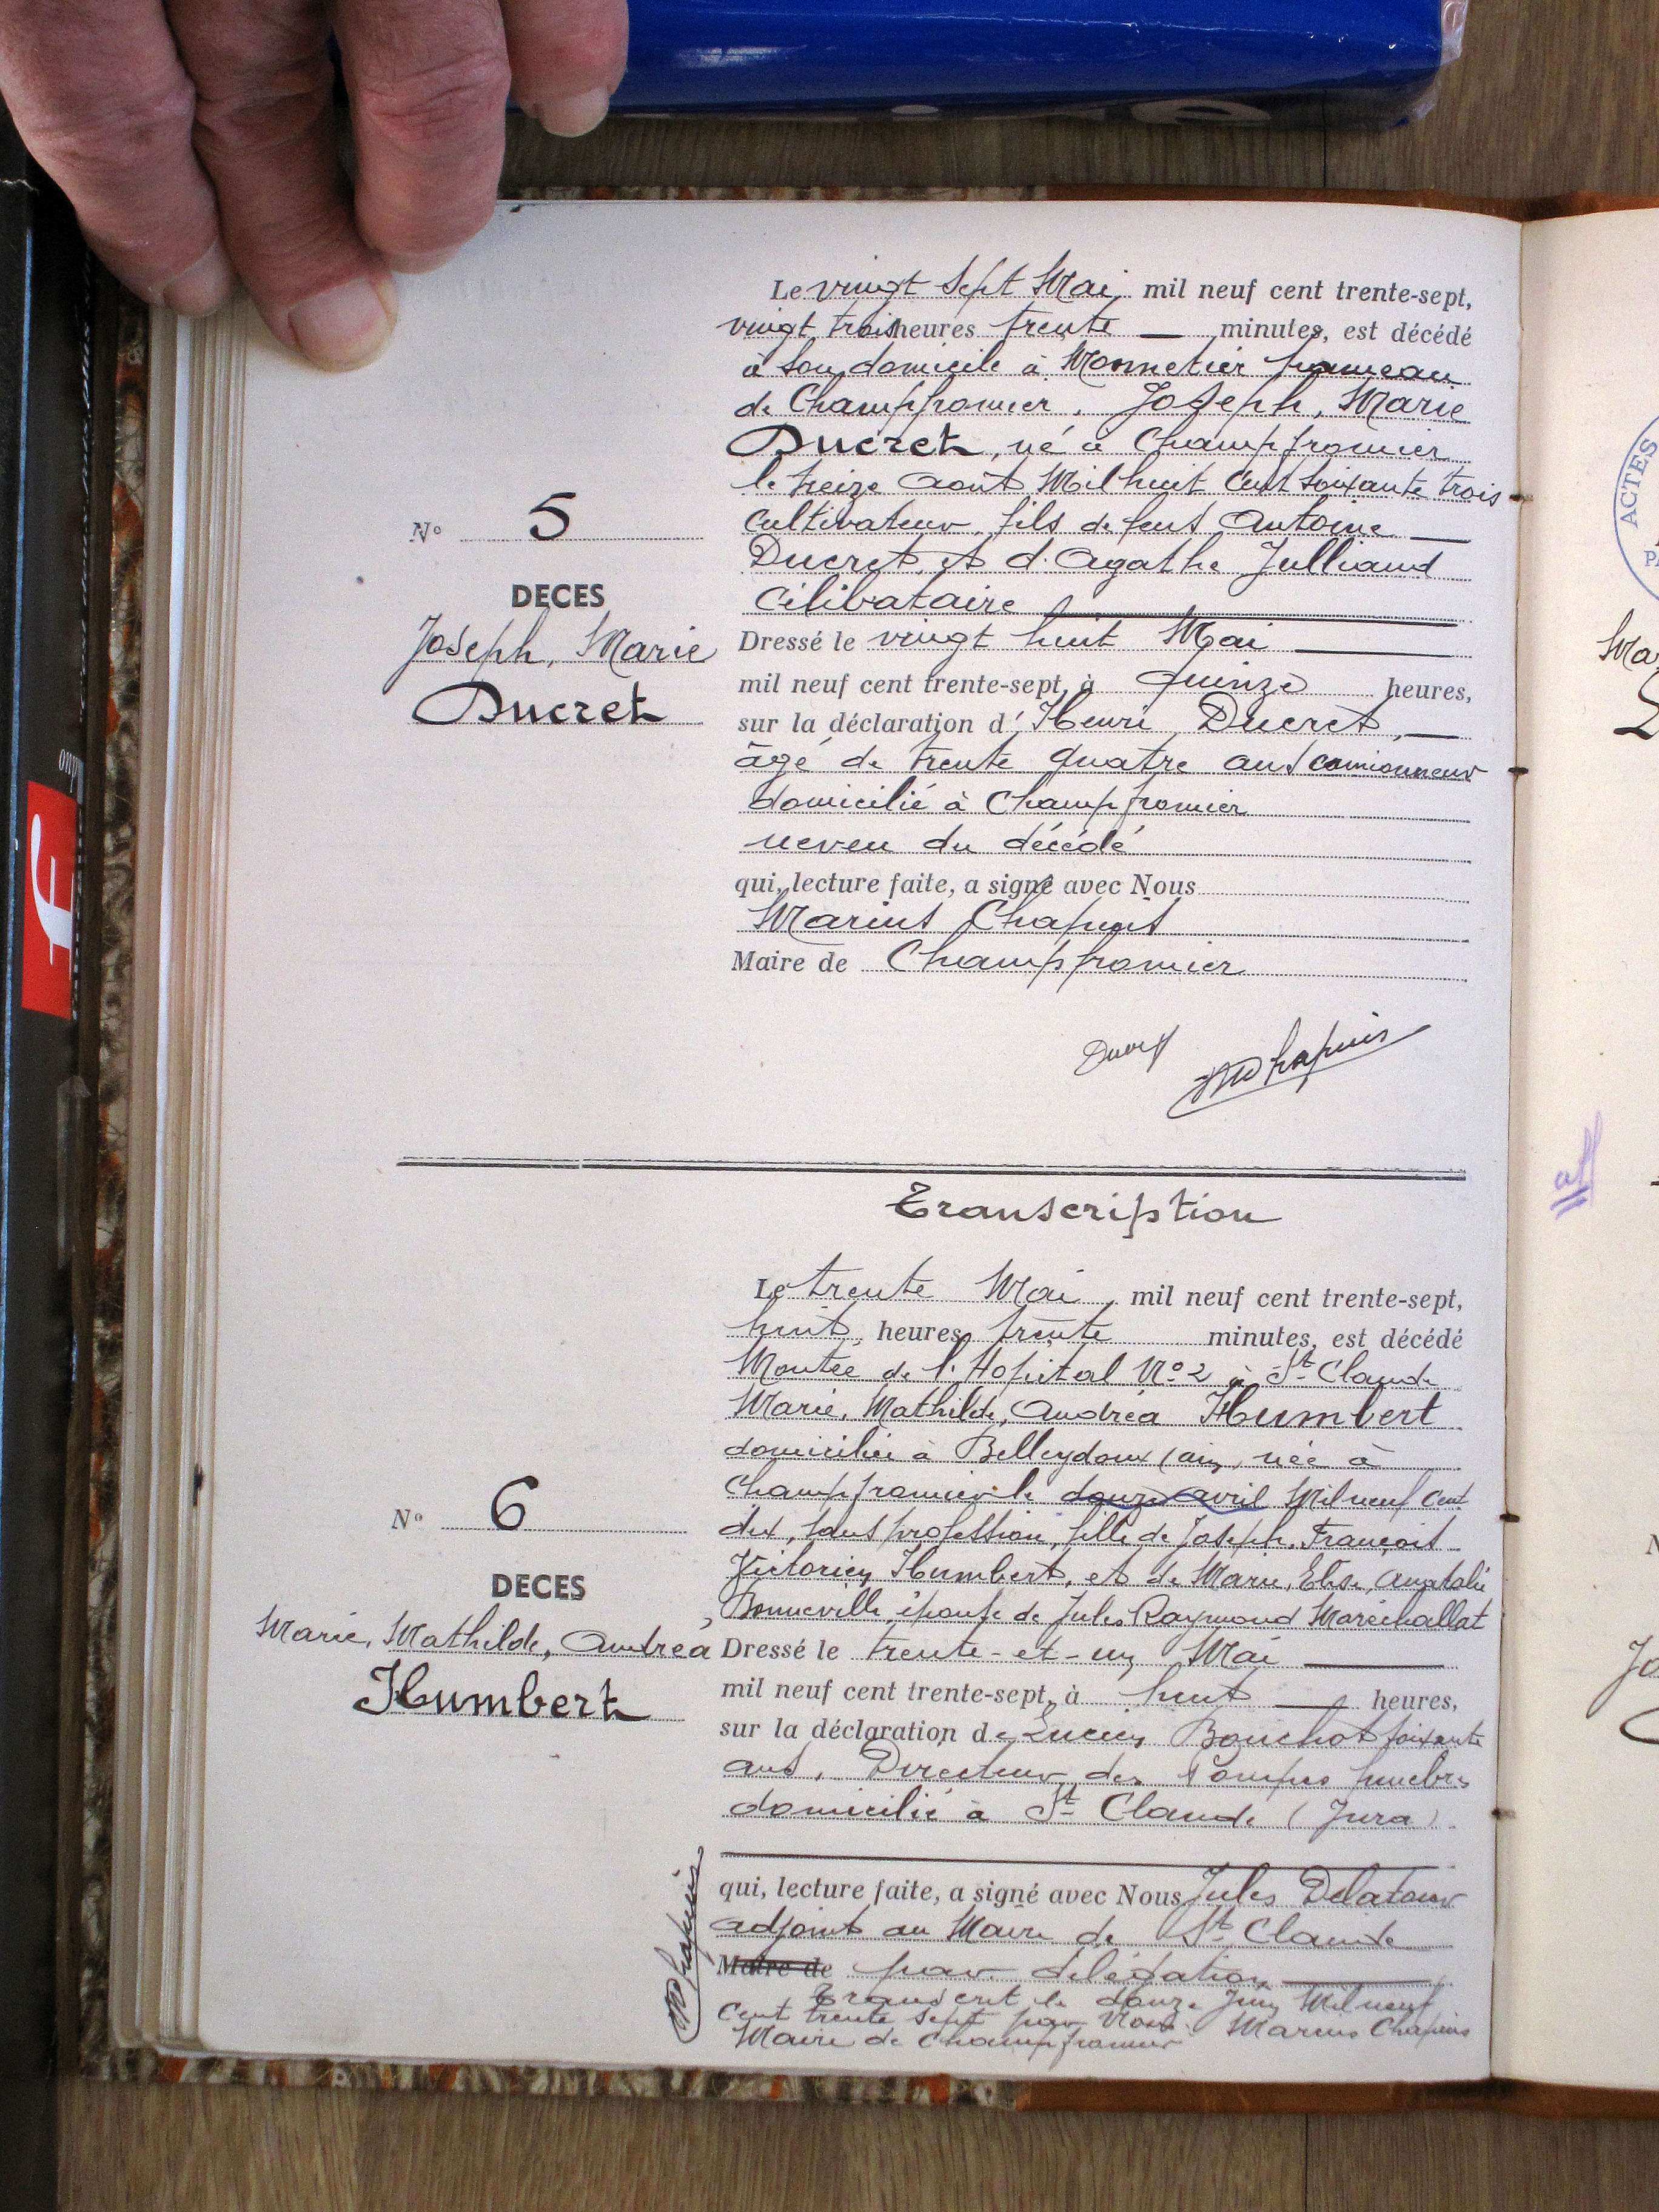 Le vingt sept Mai mil neuf cent trente-sept,
vingt trois heures trente minutes, est décédé
à son domicile à Monnetier hameau
de Champfromier, Joseph, Marie
Ducret, né à Champfromier
le treize Août Mil huit Cent soixante trois
Cultivateur, fils de feus Antoine
Ducret et d'Agathe Julliand
Célibataire
N° 5
DECES
Joseph, Marie
Ducret
Dressé le vingt huit Mai
mil neuf cent trente-sept, à quinze heures,
sur la déclaration d'Henri Ducret,
âgé de trente quatre ans camionneur
domicilié à Champfromier
neveu du décédé
qui, lecture faite, a signé avec Nous
Marius Chapuis
Maire de Champfromier
Ducret
MChapuis
Transcription
Le trente Mai, mil neuf cent trente-sept,
huit heures trente minutes, est décédé
Montée de l'Hopital N° 2 à St Claude
Marie, Mathilde, Andréa Humbert
domiciliée à Belleydoux (ain, née à
Champfromier le douze avril Mil neuf Cent
dix, sans profession, fille de Joseph, François
Victorien Humbert, et de Marie, Elise, Anatalie
Bonneville, épouse de Jules Raymond Maréchallat
N° 6
DECES
Marie, Mathilde, Andréa
Humbert
Dressé le trente-et-un Mai
mil neuf cent trente-sept, à huit heures,
sur la déclaration de Lucien Bouchot soixante
ans, Directeur des Pompes funèbres
domicilié à St Claude (Jura)
qui, lecture faite, a signé avec Nous Jules Delatour
adjoint au Maire de St Claude
Maire de par délégation
Transcrit le douze Juin Mil neuf
Cent trente sept par Nous Marius Chapuis
Maire de Champfromier
MChapuis
ACTES